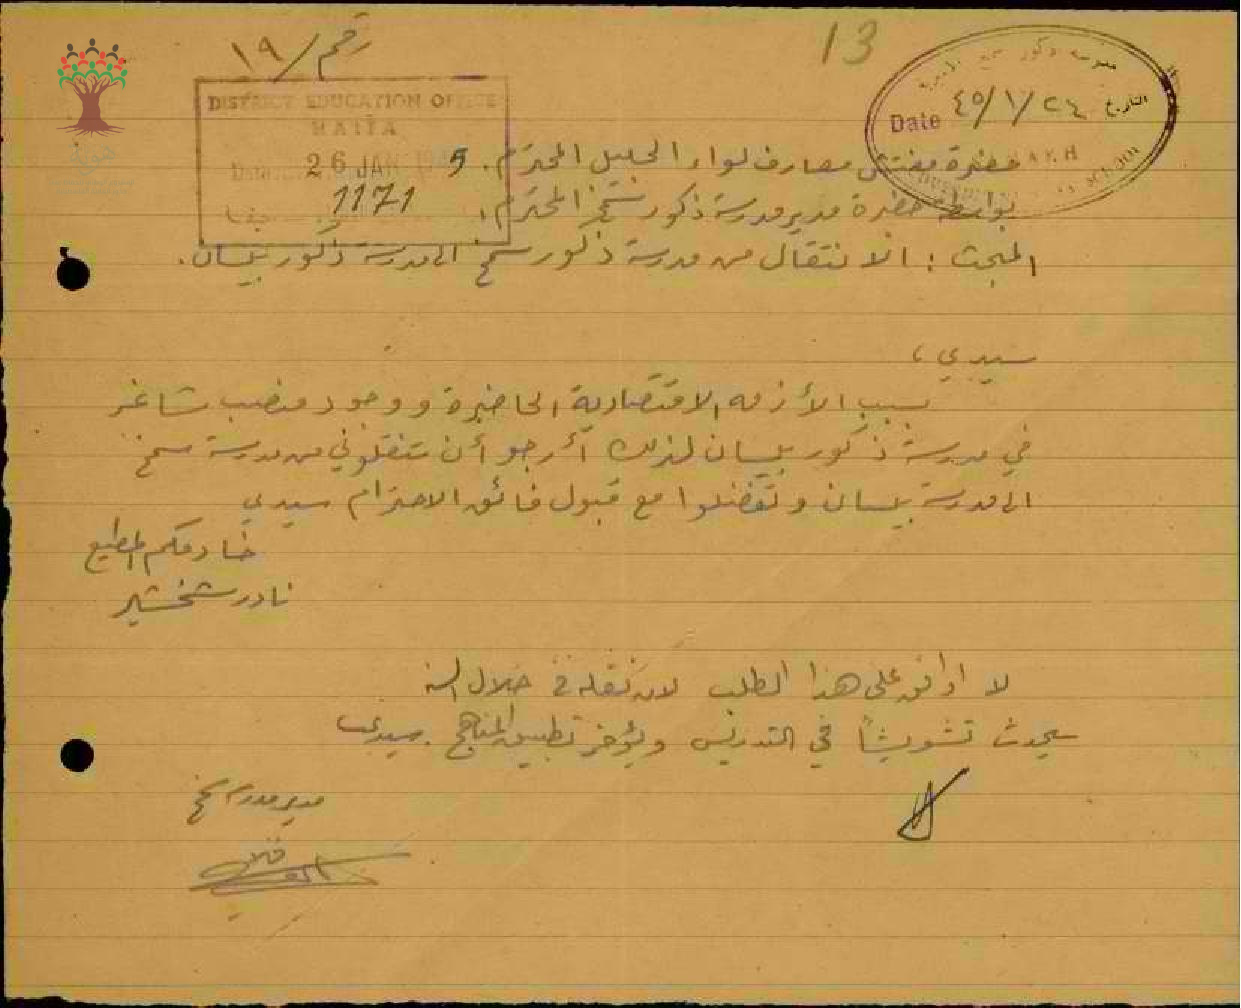 رقم / ١٩
13
DISTRICT EDUCATION OFFICE
HAIFA
Date 26 JAN 1945
1171
حيفا
مدرسة ذكور سمخ الاميرية
التاريخ ٢٤/١/٤٥ Date
SCHOOL
حضرة مفتش معارف لواء الجليل المحترم.
بواسطة حضرة مدير مدرسة ذكور سمخ المحترم،
المبحث : الانتقال من مدرسة ذكور سمخ الى مدرسة ذكور بيسان.
سيدي ،
بسبب الأزمه الاقتصادية الحاضرة ووجود منصب شاغر
في مدرسة ذكور بيسان لذلك أرجو أن تنقلوني من مدرسة سمخ
الى مدرسة بيسان وتفضلوا مع قبول فائق الاحترام سيدي
خادمكم المطيع
نادر شخشير
لا اوافق على هذا الطلب لان نقله في خلال السنه
يحدث تشويشاً في التدريس ويؤخر تطبيق المنهاج. سيدي
مدير مدرسة سمخ